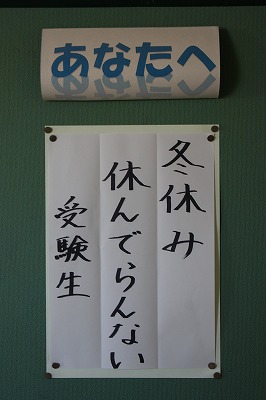 あなたへ
冬休み
休んでらんない
受験生